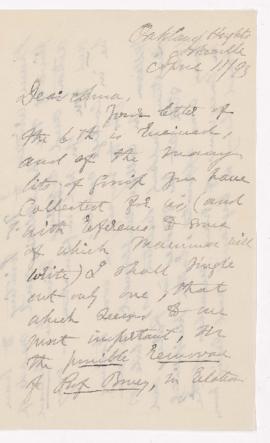 Oakland Heights
Asheville
April 11/93
Dear Anna,
Your letter of
the 6th is received,
and of the many
bits of gossip you have
collected for us (and
with reference to some
of which Mamma will
write) I shall single
out only one, that
which seems to me
most important, in
the possible removal
of Prof. in relation